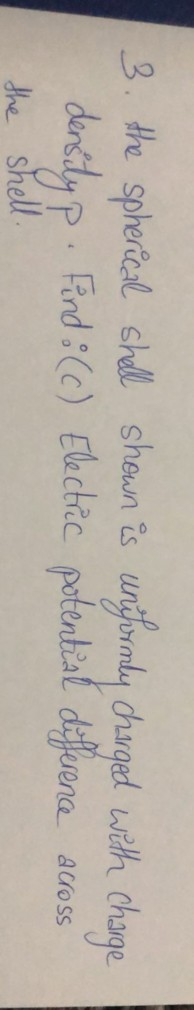 3. the spherical shell shown is uniformly charged with charge
density ρ. Find: (c) Electric potential difference across
the shell.